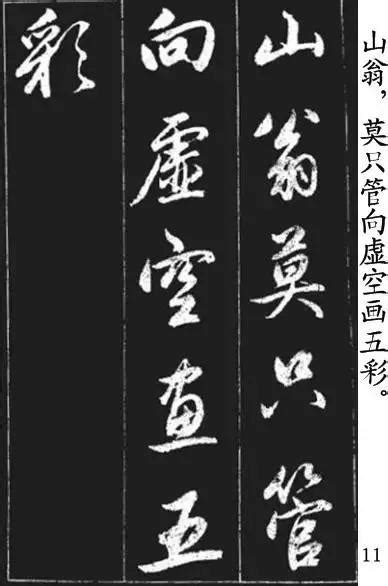 山翁莫只管
向虛空畫五
彩
山翁，莫只管向虚空画五彩。
11